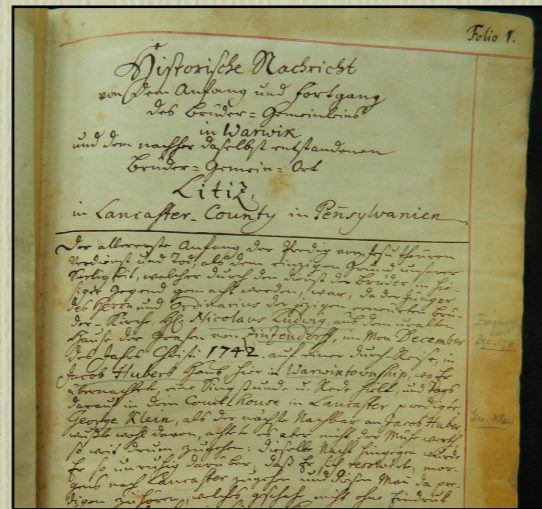 Folio 1.
Historische Nachricht
von dem Anfang und Fortgang
des Brüder-Gemeinleins
in Warwik
und dem nachher daselbst entstandenen
Brüder-Gemein-Ort
Litiz,
in Lancaster-County in Pensylvanien
Der allererste Anfang der Predig von JEsu theuren
Verdienst und Tod, als dem einzigen Grund unserer
Seeligkeit, welcher durch den Dienst der Brüder in hie-
siger Gegend gemacht worden, war, da der Jünger
des HErrn und Ordinarius der
der-Kirch, Nicolaus Ludwig, aus dem uralten
Hause der Grafen von Zinzendorf, im Mon. December
des Jahrs Christi 1742, auf einer durch Reise, in
Jacob Hubers Haus hier in Warwiktownship, wo Er
übernachtete, eine Singstunde u. Rede hielt, und Tags
darauf in dem Courthouse in Lancaster predigte.
George Klein, als der nächste Nachbar an Jacob Huber
wußte wohl davon, achtete es aber nicht der Müh werth
so weit drum zu gehen: dieselbe Nacht hingegen wurde
Er so unruhig darüber, daß Er sich resolvirt, mor-
gens nach Lancaster zu gehen und diesen Mann da pre-
digen zu hören, welches geschah nicht ohne Eindruck